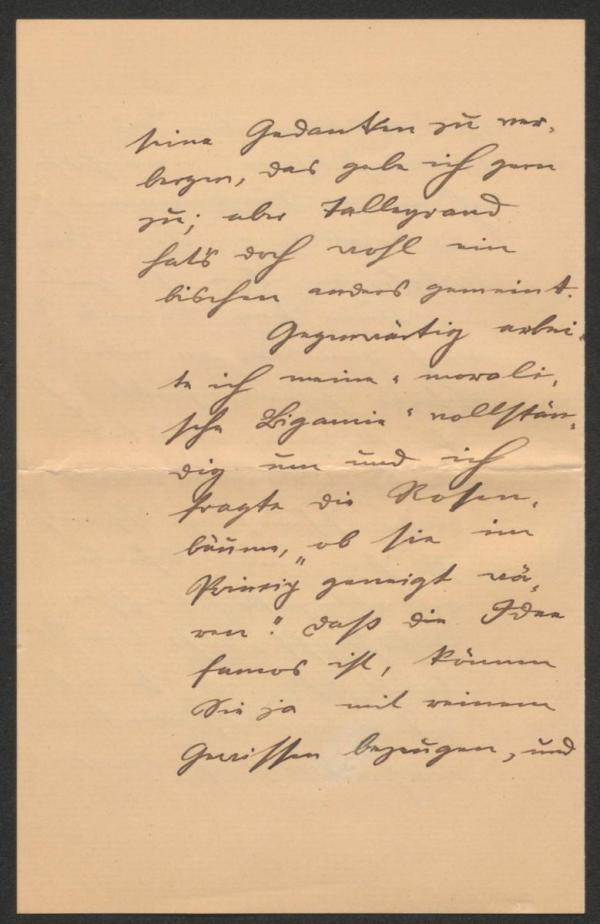 seine Gedanken zu ver-
bergen, das gebe ich gern
zu; aber Talleyrand
hat's doch wohl ein
bischen anders gemeint.
Gegenwärtig arbei-
te ich meine "morali-
sche Bigamie" vollstän-
dig um und ich
fragte die Rosen-
bäume, ob sie im
"Prinzip geneigt wä-
ren". Daß die Idee
famos ist, können
Sie ja mit reinem
Gewissen bezeugen, und